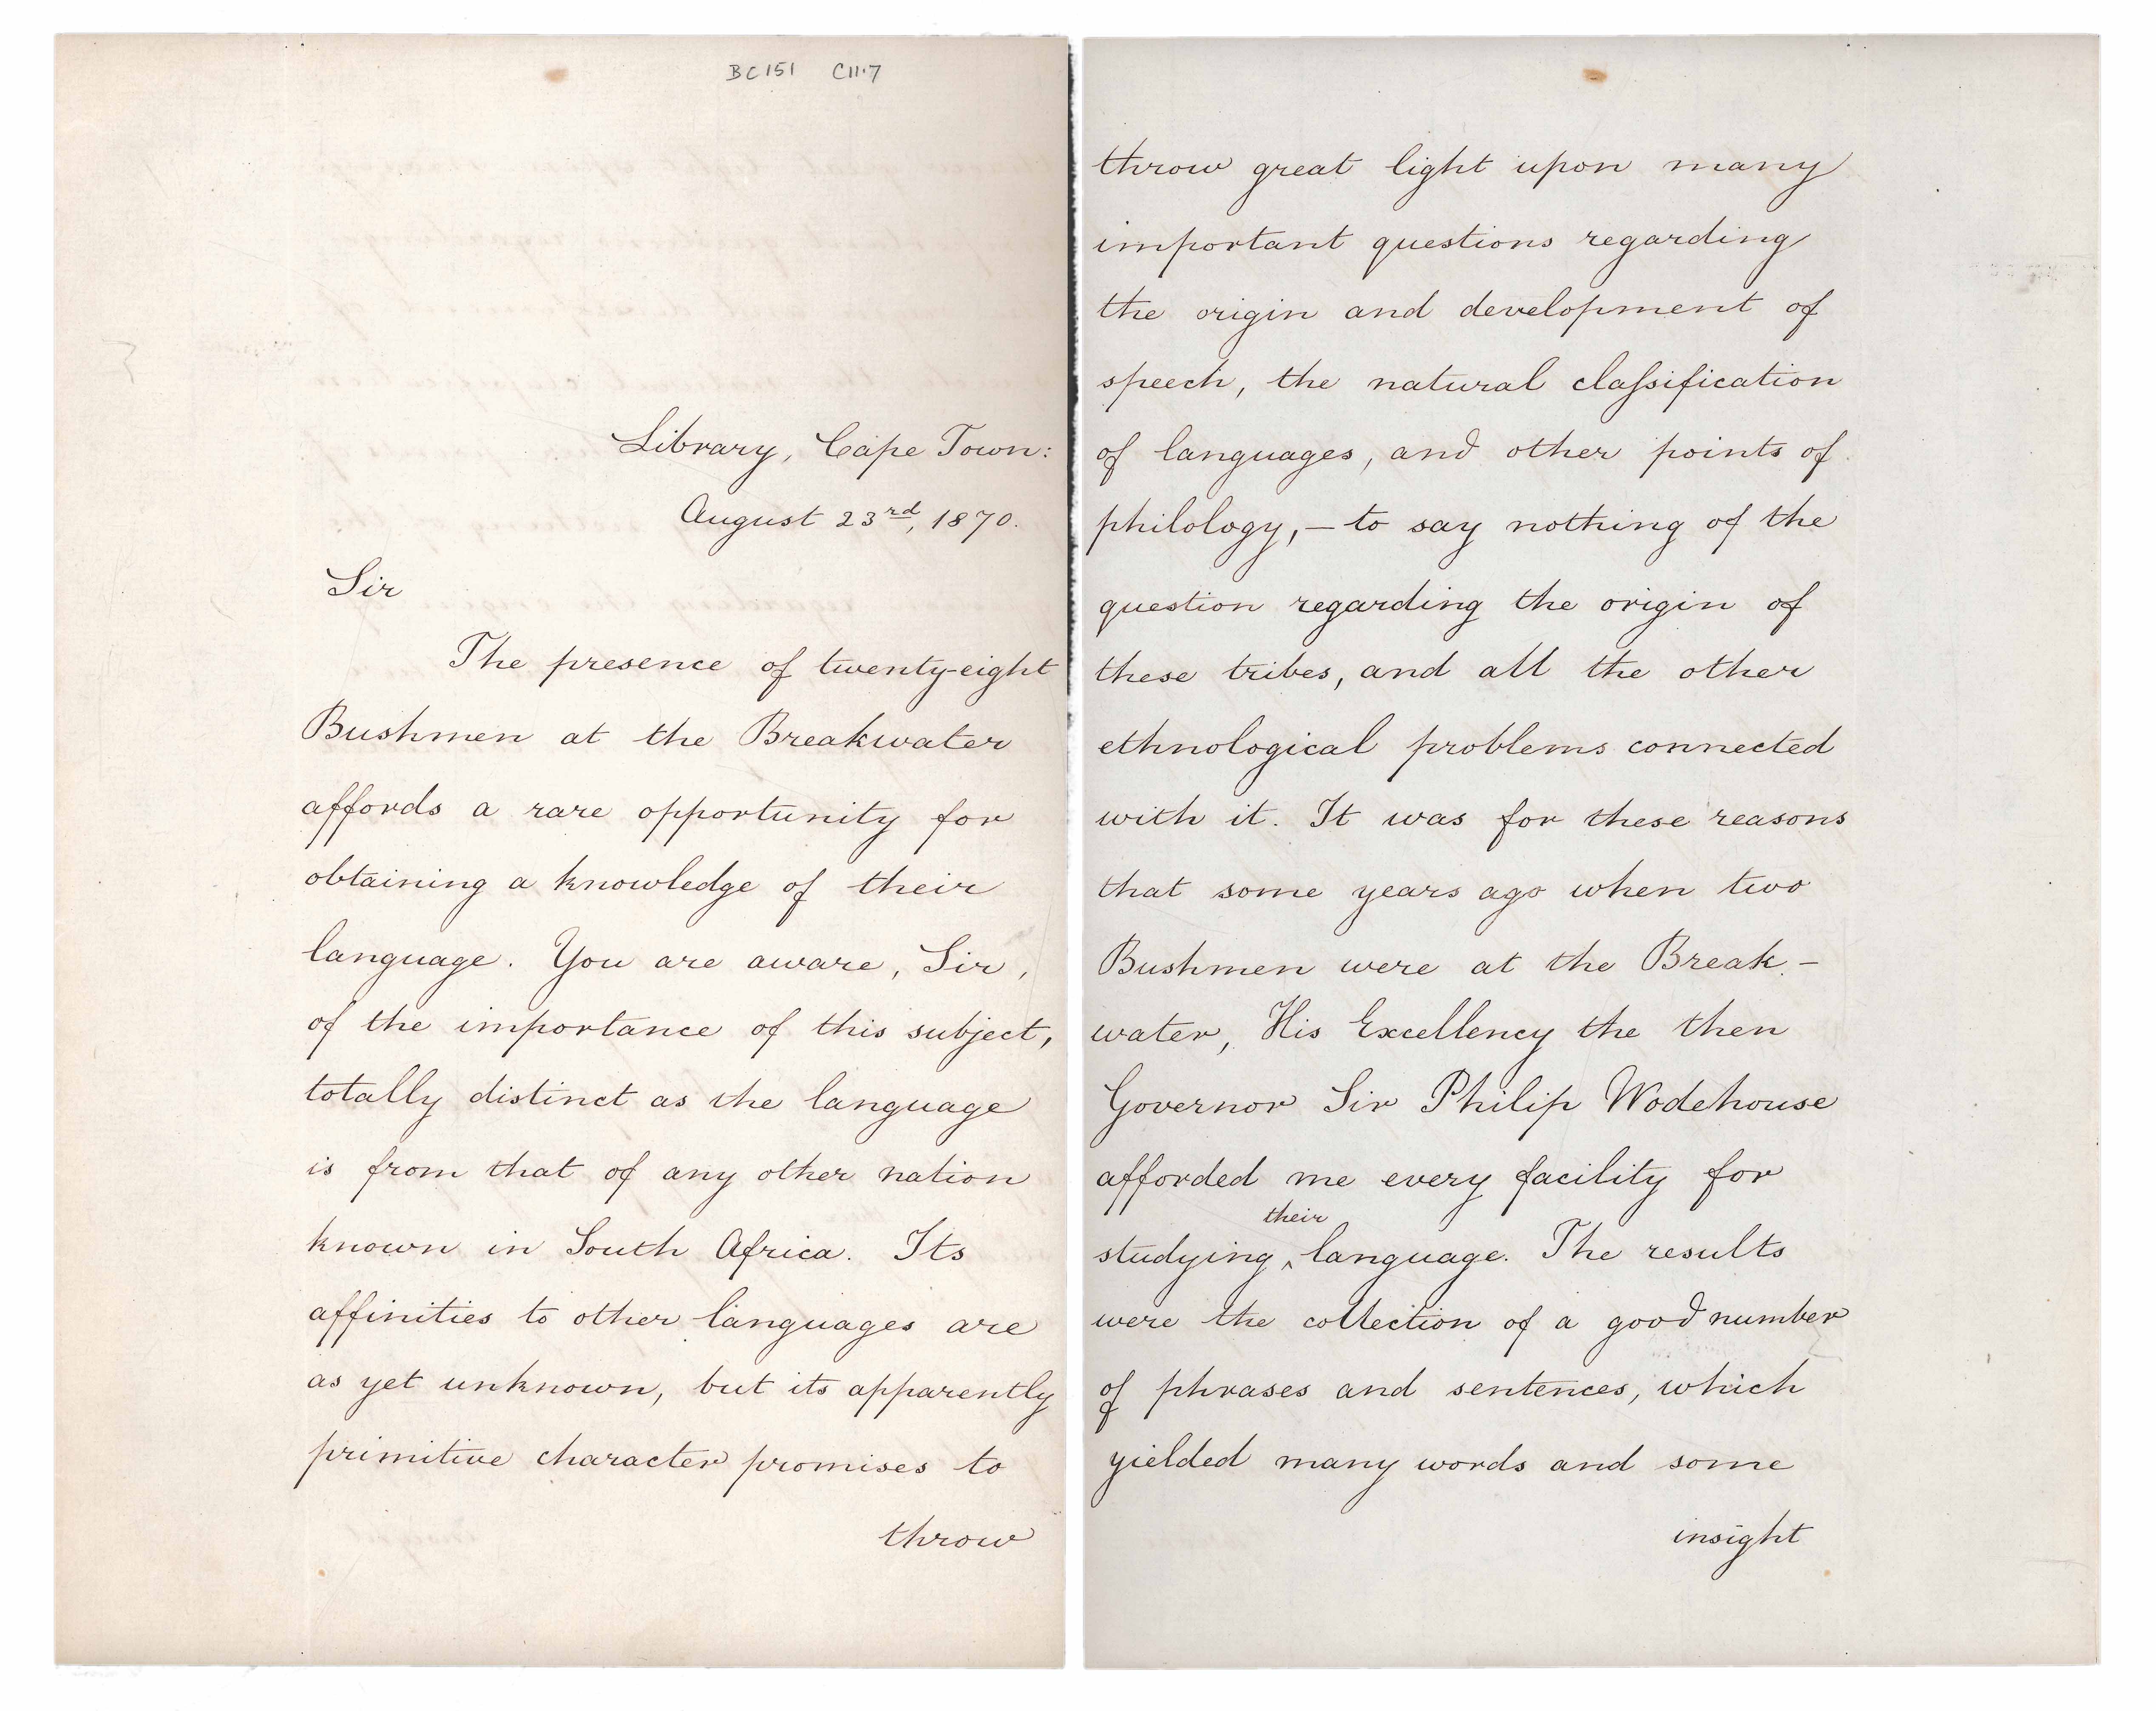 BC151 C11.7
Library, Cape Town:
August 23rd, 1870.
Sir
The presence of twenty-eight
Bushmen at the Breakwater
affords a rare opportunity for
obtaining a knowledge of their
language. You are aware, Sir,
of the importance of this subject,
totally distinct as the language
is from that of any other nation
known in South Africa. Its
affinities to other languages are
as yet unknown, but its apparently
primitive character promises to
throw
throw great light upon many
important questions regarding
the origin and development of
speech, the natural claſsification
of languages, and other points of
philology, – to say nothing of the
question regarding the origin of
these tribes, and all the other
ethnological problems connected
with it. It was for these reasons
that some years ago when two
Bushmen were at the Break-
water, His Excellency the then
Governor Sir Philip Wodehouse
afforded me every facility for
their
studying ‸ language. The results
were the collection of a good number
of phrases and sentences, which
yielded many words and some
insight